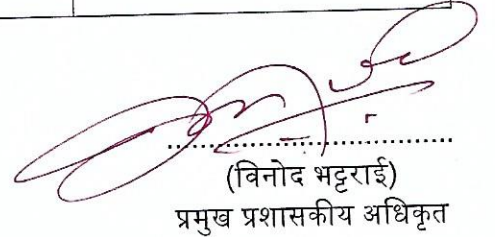 (विनोद भट्टराई)
प्रमुख प्रशासकीय अधिकृत